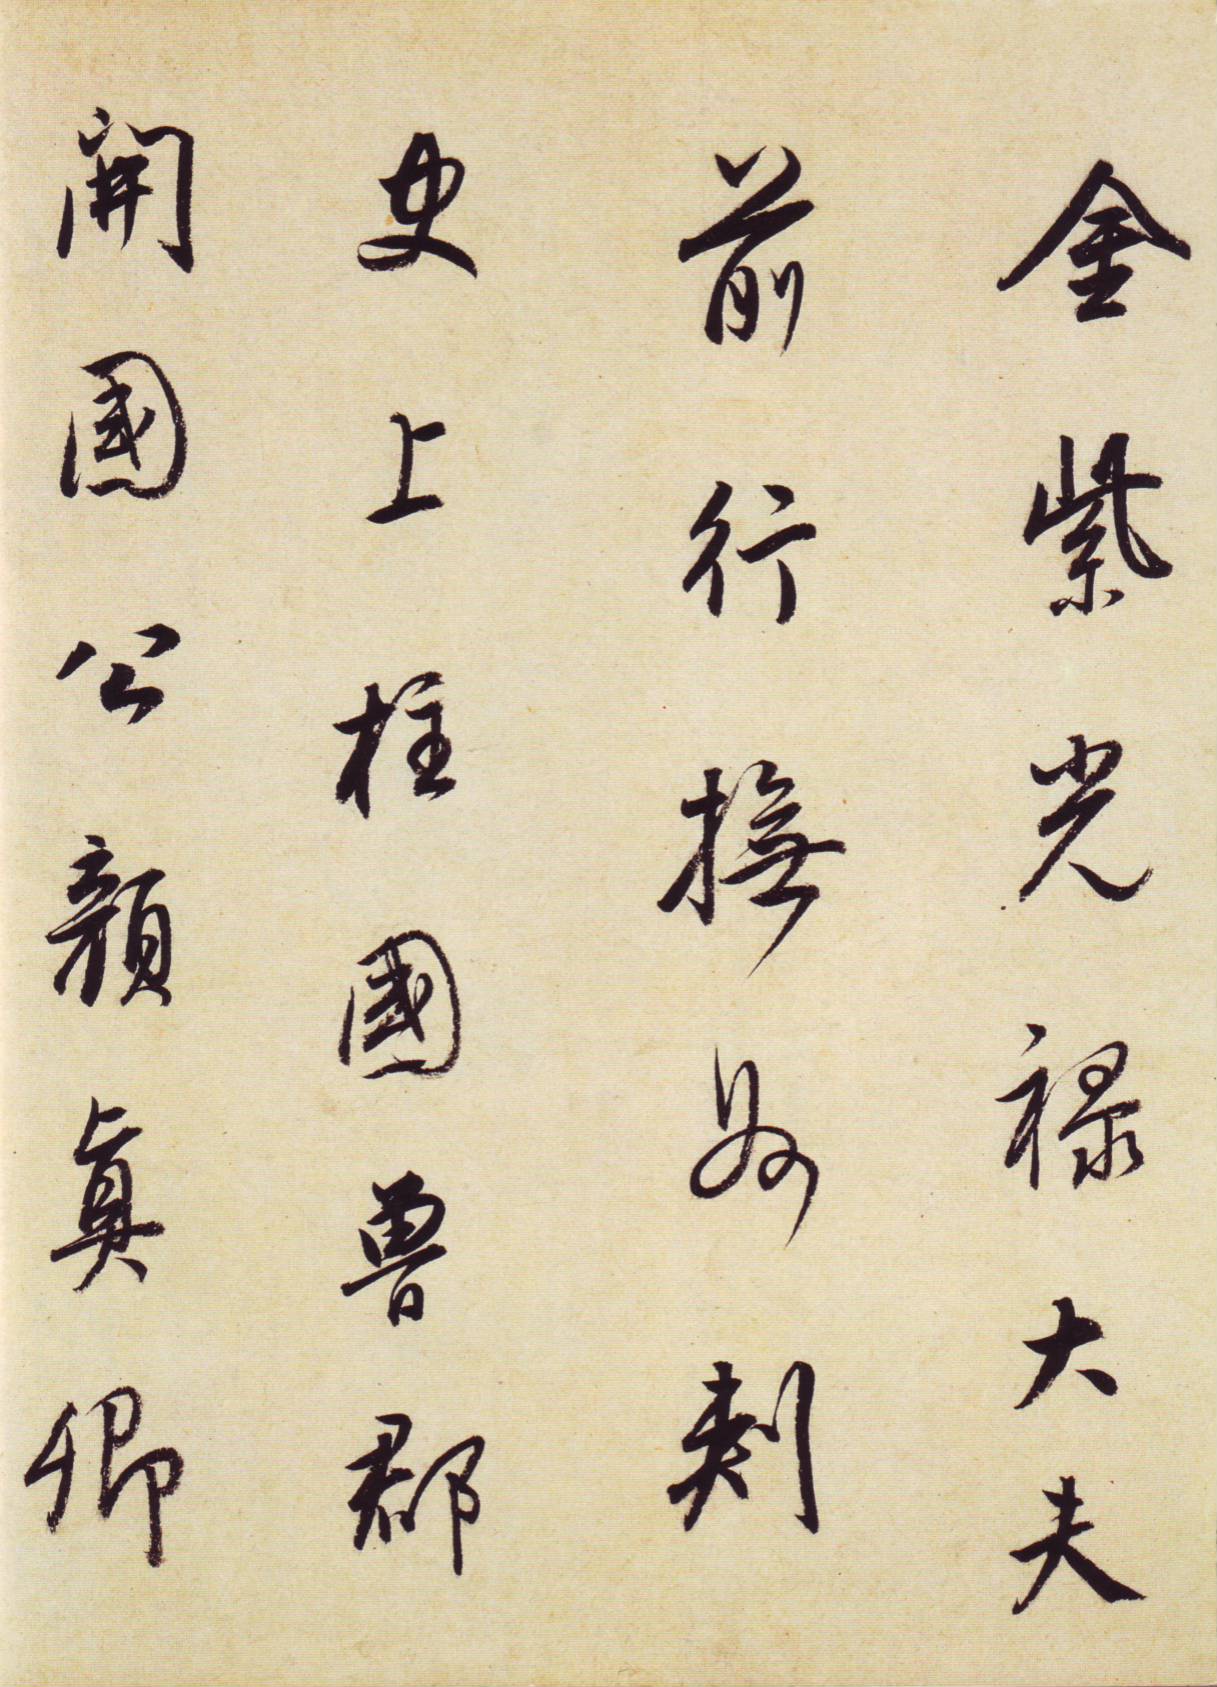 金紫光禄大夫
前行撫州刺
史上柱國魯郡
開國公顏真卿